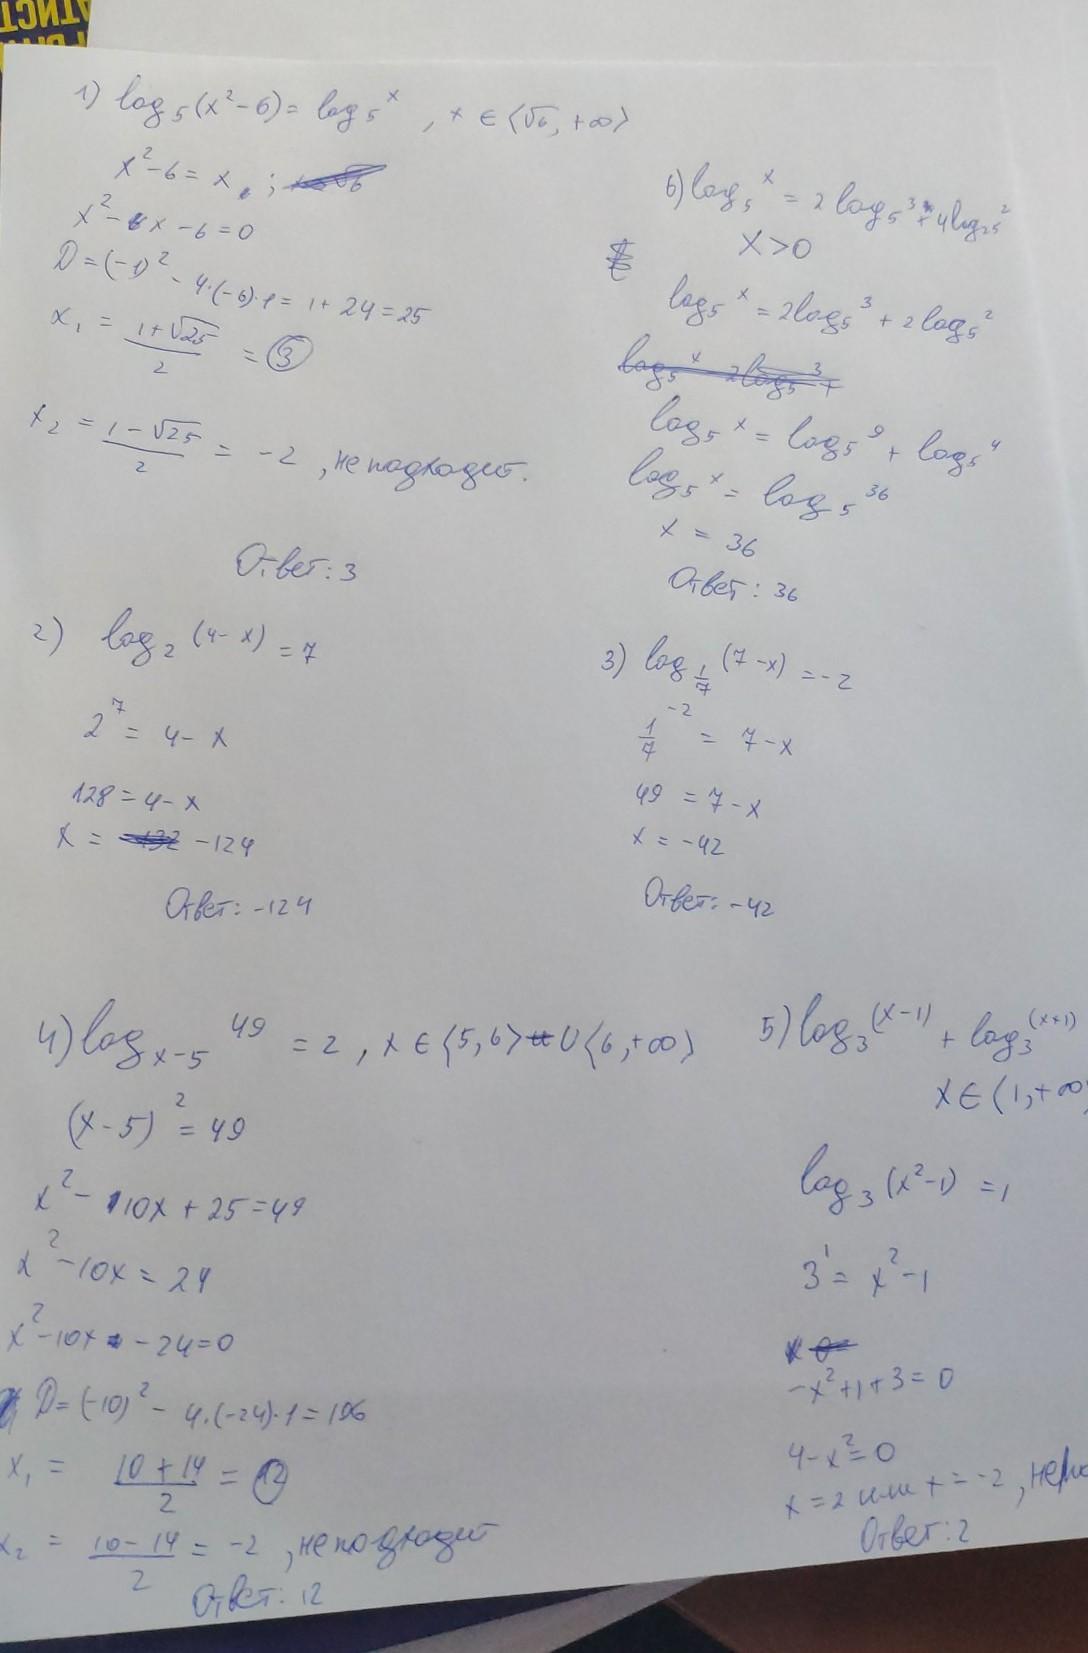 1) log₅(x²-6) = log₅ˣ , x ∈ ⟨√6, +∞⟩
x²-6 = x ;
x² - x - 6 = 0
D = (-1)² - 4·(-6)·1 = 1 + 24 = 25
x₁ = (1+√25)/2 = 3
x₂ = (1-√25)/2 = -2 , не подходит.
Ответ: 3
6) log₅ˣ = 2log₅³ + 4log₂₅²
x > 0
log₅ˣ = 2log₅³ + 2log₅²
log₅ˣ 2log₅³ +
log₅ˣ = log₅⁹ + log₅⁴
log₅ˣ = log₅³⁶
x = 36
Ответ: 36
2) log₂⁽⁴⁻ˣ⁾ = 7
2⁷ = 4 - x
128 = 4 - x
x = -132 -124
Ответ: -124
3) log_{1/7}(7-x) = -2
1/7⁻² = 7 - x
49 = 7 - x
x = -42
Ответ: -42
4) log_{x-5} 49 = 2 , x ∈ ⟨5, 6⟩ ∪ ⟨6, +∞⟩
(x-5)² = 49
x² - 10x + 25 = 49
x² - 10x = 24
x² - 10x - 24 = 0
D = (-10)² - 4·(-24)·1 = 196
x₁ = (10+14)/2 = 12
x₂ = (10-14)/2 = -2 , не подходит
Ответ: 12
5) log₃⁽ˣ⁻¹⁾ + log₃⁽ˣ⁺¹⁾
x ∈ (1, +∞)
log₃(x²-1) = 1
3¹ = x² - 1
-x² + 1 + 3 = 0
4 - x² = 0
x = 2 или x = -2 ,
Ответ: 2